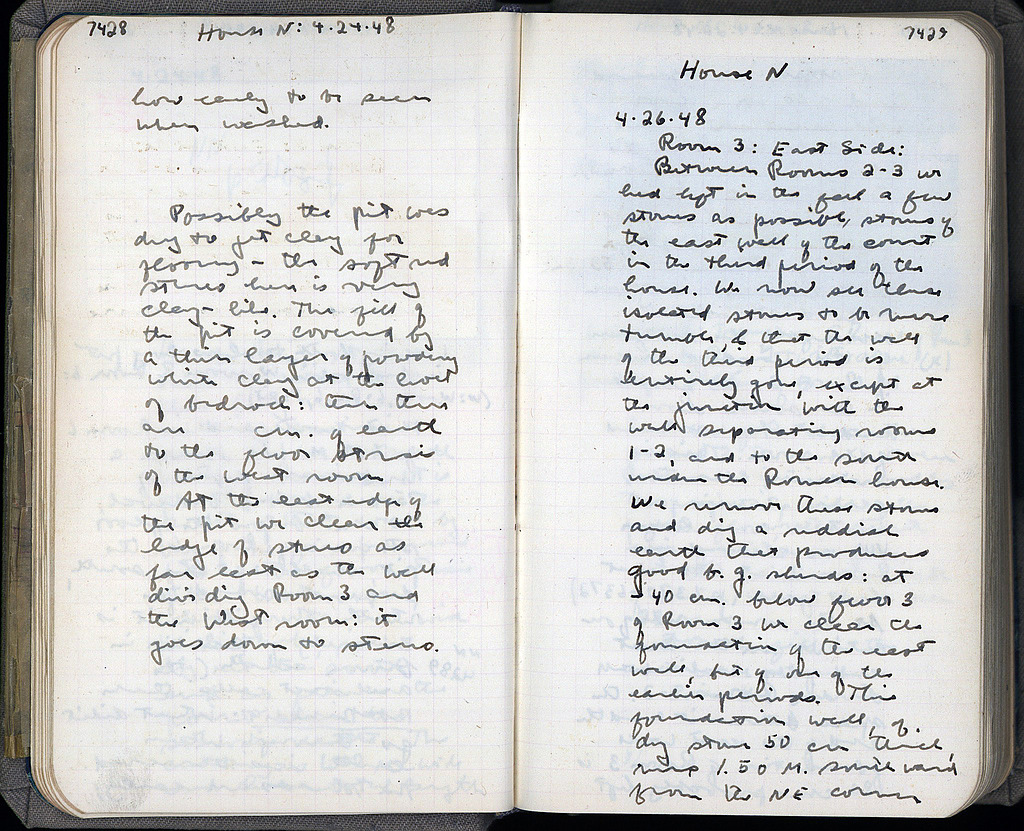 7428
House N: 4.24.48
how early to be seen
when washed.
Possibly the pit was
dug to get clay for
flooring - the soft red
stereo here is very
clay-like. The fill of
the pit is covered by
a thin layer of powdery
white clay at the level
of bedrock: then there
are cm. of earth
to the floor
of the West room
At the east edge of
the pit we clear the
ledge of stereo as
far east as the wall
dividing Room 3 and
the West room: it
goes down to stereo.
7429
House N
4.26.48
Room 3: East Side:
Between Rooms 2-3 we
had left in the a few
stones as possible, stones of
the east wall of the court
in the third period of the
house. We now see these
isolated stones to be mere
tumble, & that the wall
of the third period is
entirely gone, except at
the junction with the
wall separating rooms
1-2, and to the south
under the Roman house.
We remove these stones
and dig a reddish
earth that produces
good b.g. sherds: at
-40 cm. below floor 3
of Room 3 we clear the
foundation of the east
wall, but of one of the
earlier periods. This
foundation wall, of
dry stone 50 cm thick,
runs 1.50 M. southward
from the NE corner